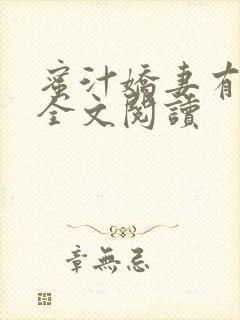 蜜汁嬌妻有
全文閱讀
章無忌